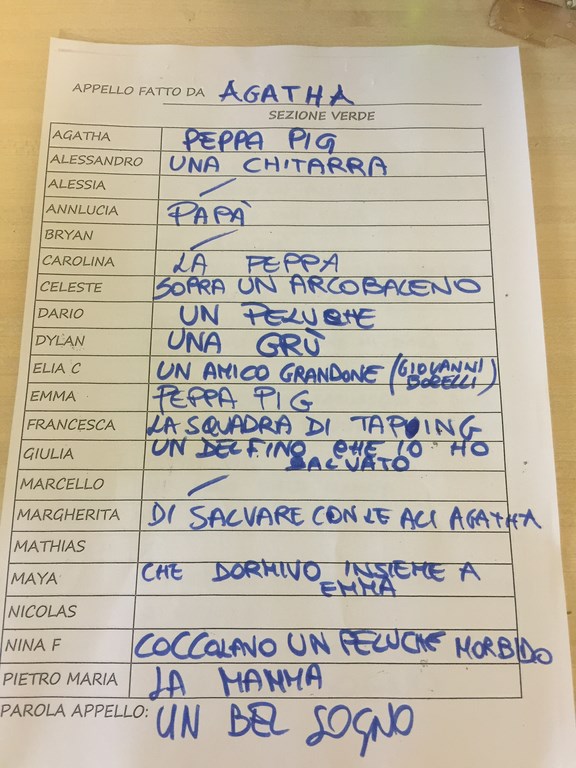 APPELLO FATTO DA AGATHA
SEZIONE VERDE
AGATHA PEPPA PIG
ALESSANDRO UNA CHITARRA
ALESSIA /
ANNLUCIA PAPÀ
BRYAN /
CAROLINA LA PEPPA
CELESTE SOPRA UN ARCOBALENO
DARIO UN PELUCHE
DYLAN UNA GRÙ
ELIA C UN AMICO GRANDONE (GIOVANNI
BORELLI)
EMMA PEPPA PIG
FRANCESCA LA SQUADRA DI TAPPING
GIULIA UN DELFINO CHE IO HO
SALVATO
MARCELLO /
MARGHERITA DI SALVARE CON LE ALI AGATHA
MATHIAS
MAYA CHE DORMIVO INSIEME A
EMMA
NICOLAS
NINA F COCCOLANO UN PELUCHE MORBIDO
PIETRO MARIA LA MAMMA
PAROLA APPELLO: UN BEL SOGNO